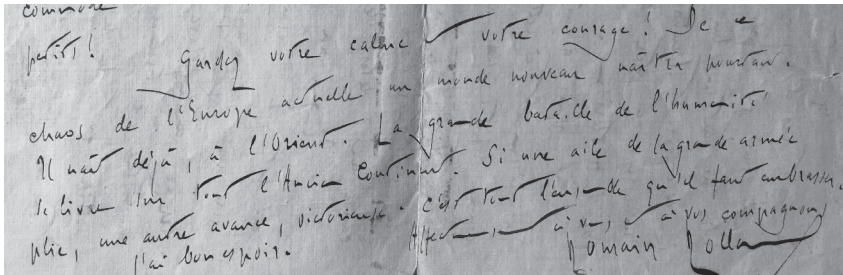 commode
petits !
Gardez votre calme et votre courage ! De ce
chaos de l'Europe actuelle un monde nouveau naîtra pourtant.
Il naît déjà, à l'Orient. La grande bataille de l'humanité
se livre sur tout l'Ancien Continent. Si une aile de la grande armée
plie, une autre avance, victorieuse. C'est tout l'ensemble qu'il faut embrasser.
J'ai bon espoir.
Affectueusement à vous et à vos compagnons
Romain Rolland